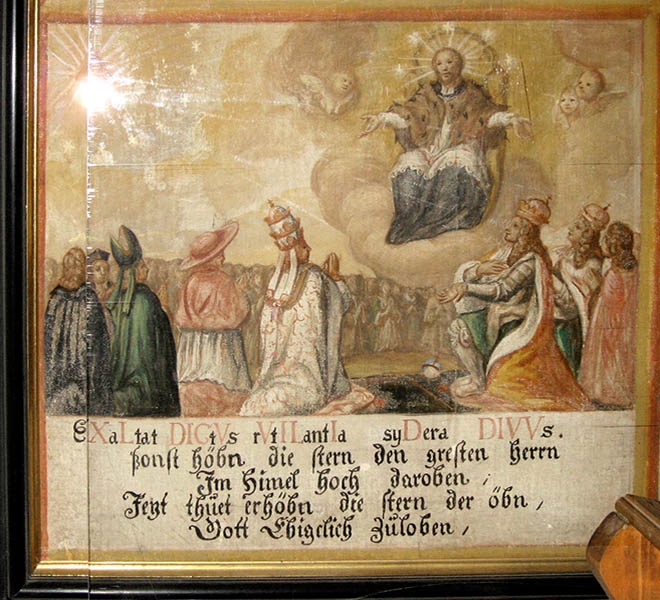 EXaLtat syDera DIVVs.
Sonst höbn die stern den gresten herrn
Im Himel hoch daroben,
Jezt thuet erhöbn die stern der öbn,
Gott Ebigclich Züloben,